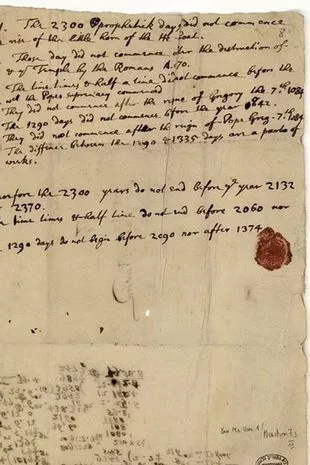 1. The 2300 prophetick days did not commence
e rise of the little horn of the He Goat.
8
Those day did not commence ater the destruction of
& ye Temple by the Romans A. 70.
The time times & half a time did not commence before the
wch the Popes supremacy commenced
They did not commence after the reigne of Gregory the 7th. 1084
The 1290 days did not commence bfore the year 842.
They did not commence after the reigne of Pope Greg. 7th. 1084
The diffence between the 1290 & 1335 days are a parts of
weeks.
erfore the 2300 years do not end before ye year 2132
2370.
e time times & half time do not end before 2060 nor
1290 days do not begin before 2090 nor after 1374